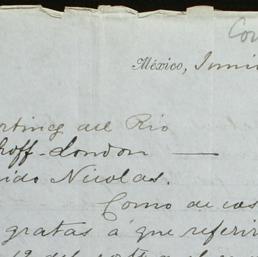 Con
México, Junio
rtinez del Rio
hoff-London —
rido Nicolas.
Como de cos
gratas á que referir